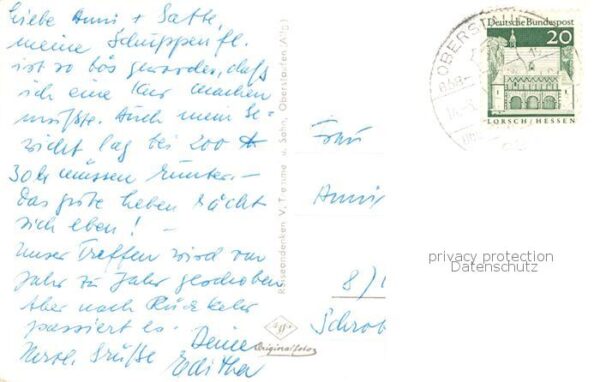 Liebe Anni + Gatte,
meine Schuppenfl.
ist so bös geworden, daß
ich eine Kur machen
mußte. Auch mein Ge-
wicht lag bei 200 ℔
30 ℔ müssen runter.-
Das gute Leben rächt
sich eben! -
Unser Treffen wird von
Jahr zu Jahr geschoben
Aber nach Rückkehr
passiert es.
Deine
Herzl. Grüße Editha
Reiseandenken V. Tremme u. Sohn, Oberstaufen (Allg.)
Agfa
Originalfoto
Frau
Anni
8/
Schrob
OBERST
Deutsche Bundespost
20
LORSCH / HESSEN
privacy protection
Datenschutz